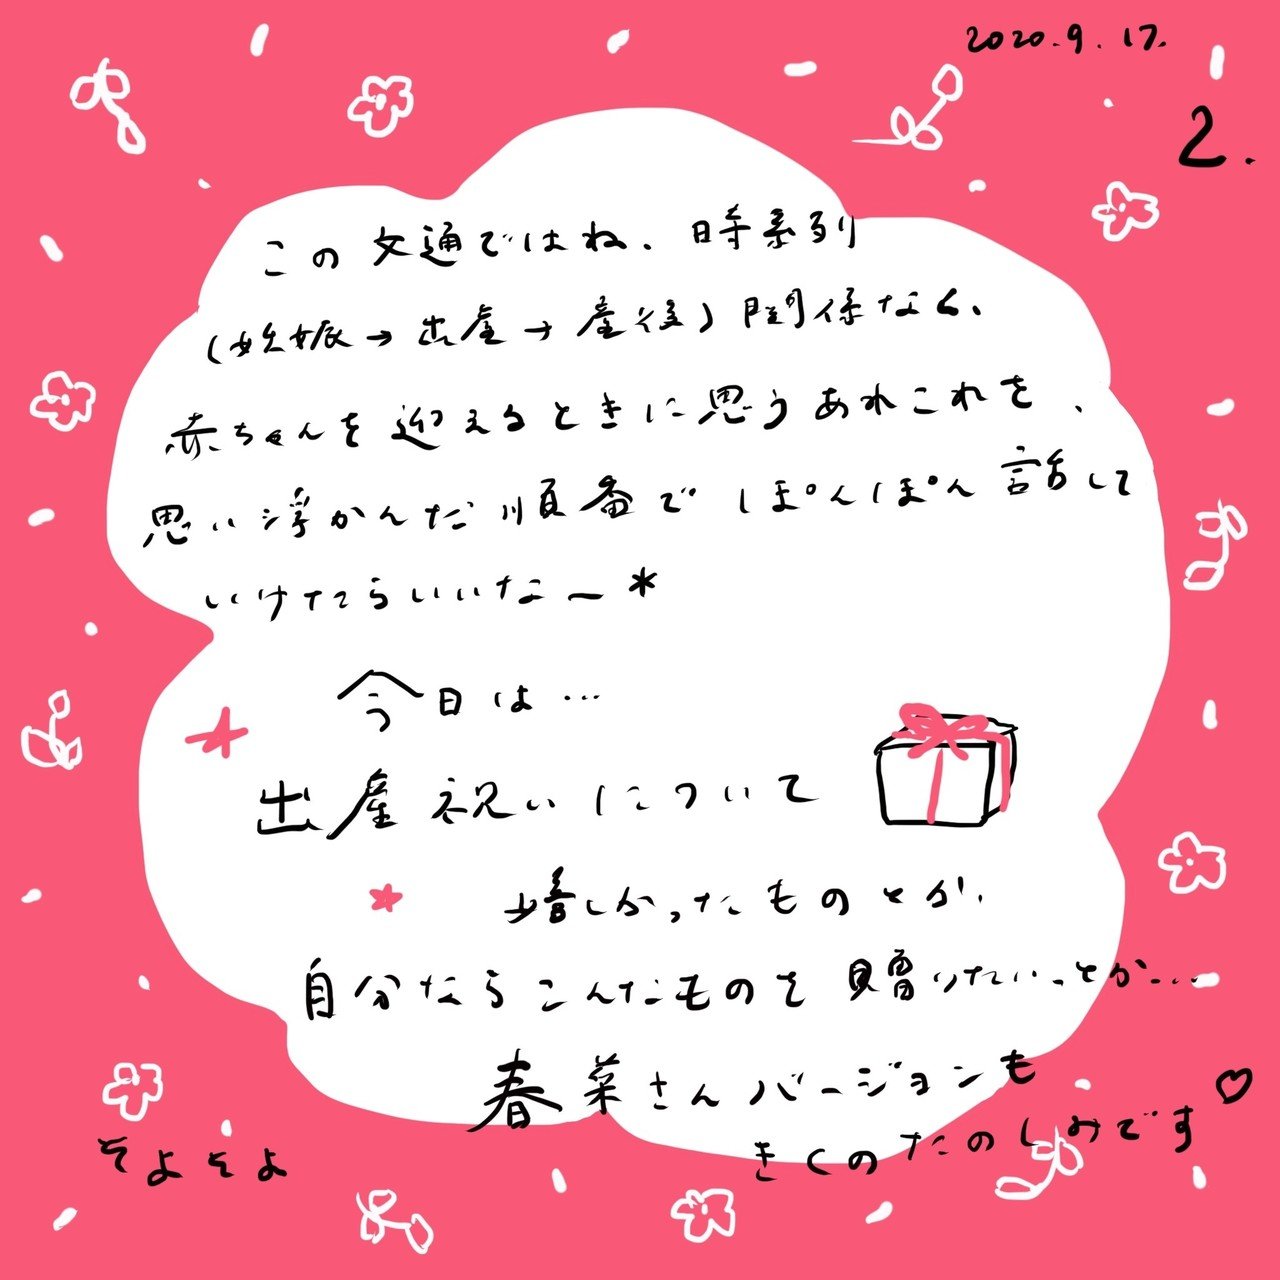 2020.9.17.
2.
この文通ではね、時系列
(妊娠→出産→産後)関係なく、
赤ちゃんを迎えるときに思うあれこれを、
思い浮かんだ順番でぽんぽん話して
いけたらいいなー*
今日は…
出産祝いについて
嬉しかったものとか、
自分ならこんなものを贈りたいっとか…
春菜さんバージョンも
きくのたのしみです♡
そよそよ